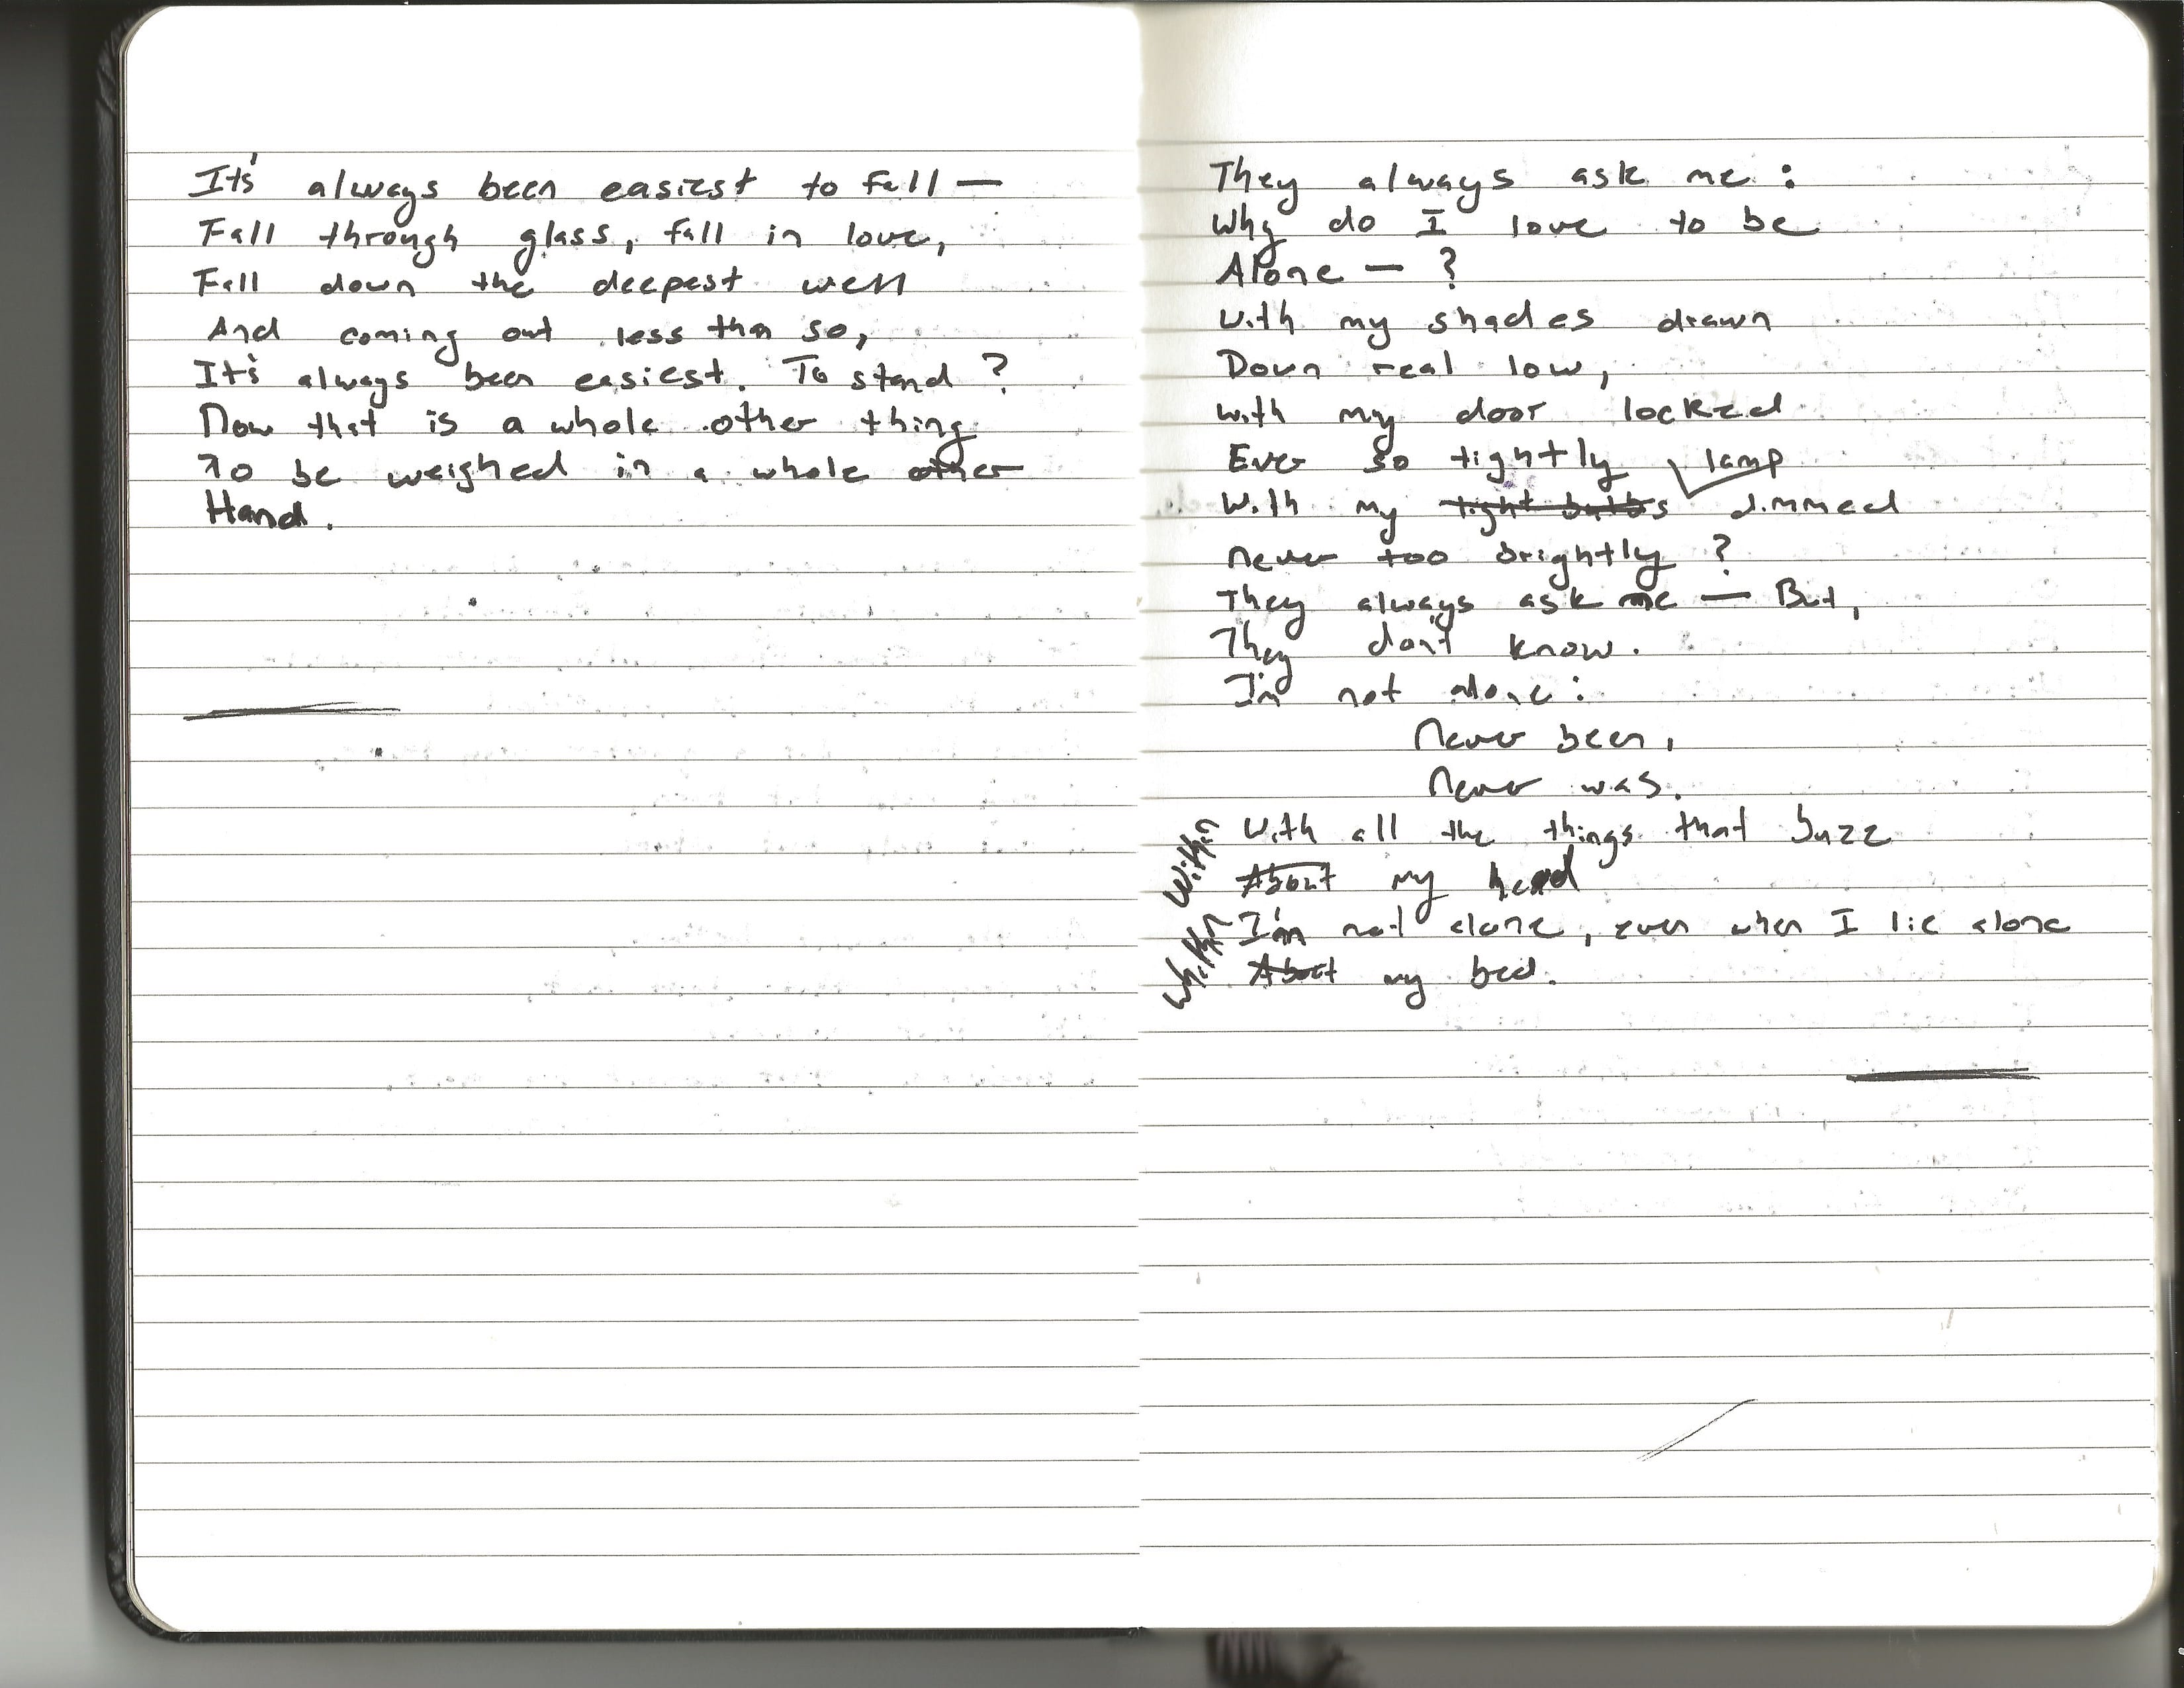 It's always been easiest to fall —
Fall through glass, fall in love,
Fall down the deepest well
And coming out less than so,
It's always been easiest. To stand?
Now that is a whole other thing
To be weighed in a whole other
Hand.
They always ask me:
Why do I love to be
Alone — ?
With my shades drawn
Down real low,
With my door locked
Ever so tightly
lamp
With my light bulbs dimmed
Never too brightly?
They always ask me — But,
They don't know.
I'm not alone:
Never been,
Never was.
With all the things that buzz
Within About my head
I'm not alone, even when I lie alone
Whithin About my bed.